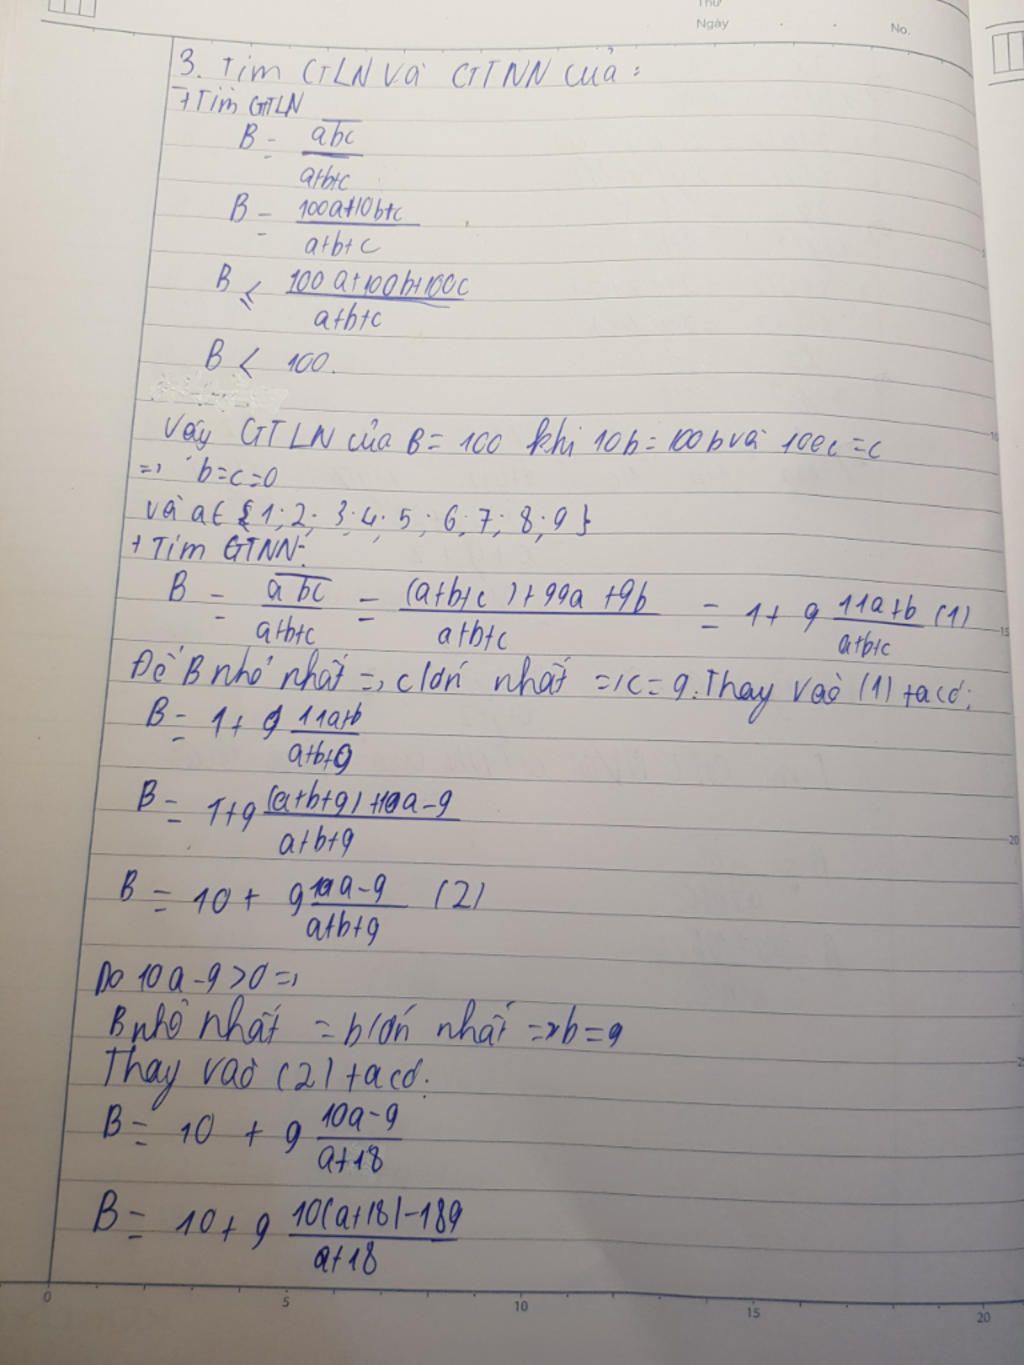 Thứ
Ngày . .
No.
3. Tìm GTLN và GTNN của :
+ Tìm GTLN
B = \overline{abc} / a+b+c
B = 100a+10b+c / a+b+c
B ≤ 100a+100b+100c / a+b+c
B < 100.
Vậy GTLN của B = 100 khi 10b = 100b và 100c = c
=> b=c=0
và a ∈ {1; 2; 3; 4; 5; 6; 7; 8; 9}
+ Tìm GTNN:
B = \overline{abc} / a+b+c = (a+b+c)+99a+9b / a+b+c = 1 + 9 11a+b / a+b+c (1)
Để B nhỏ nhất => c lớn nhất => c = 9. Thay vào (1) ta có:
B = 1 + 9 11a+b / a+b+9
B = 1+9 (a+b+9)+10a-9 / a+b+9
B = 10 + 9 10a-9 / a+b+9 (2)
Do 10a-9 >0 =>
B nhỏ nhất = b lớn nhất => b = 9
Thay vào (2) ta có.
B = 10 + 9 10a-9 / a+18
B = 10 + 9 10(a+18)-189 / a+18
0 5 10 15 20
10
15
20